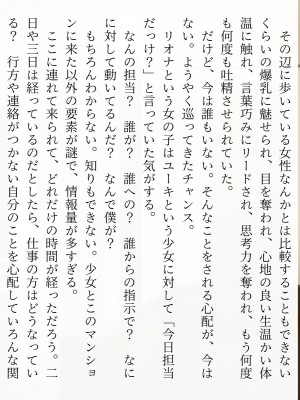 その辺に歩いている女性なんかとは比較することもできない
くらいの爆乳に魅せられ、目を奪われ、心地の良い生温かい体
温に触れ、言葉巧みにリードされ、思考力を奪われ、もう何度
も何度も吐精させられていた。
だけど、今は誰もいない。そんなことをされる心配が、今は
ない。ようやく巡ってきたチャンス。
リオナという女の子はユーキという少女に対して「今日担当
だっけ？」と言っていた気がする。
なんの担当？　誰が？　誰への？　誰からの指示で？　なに
に対して動いてるんだ？　なんで僕が？
もちろんわからない。知りもできない。少女とこのマンショ
ンに来た以外の要素が謎で、情報量が多すぎる。
ここに連れて来られて、どれだけの時間が経っただろう。二
日や三日は経っているのだとしたら、仕事の方はどうなってい
る？　行方や連絡がつかない自分のことを心配していろんな関